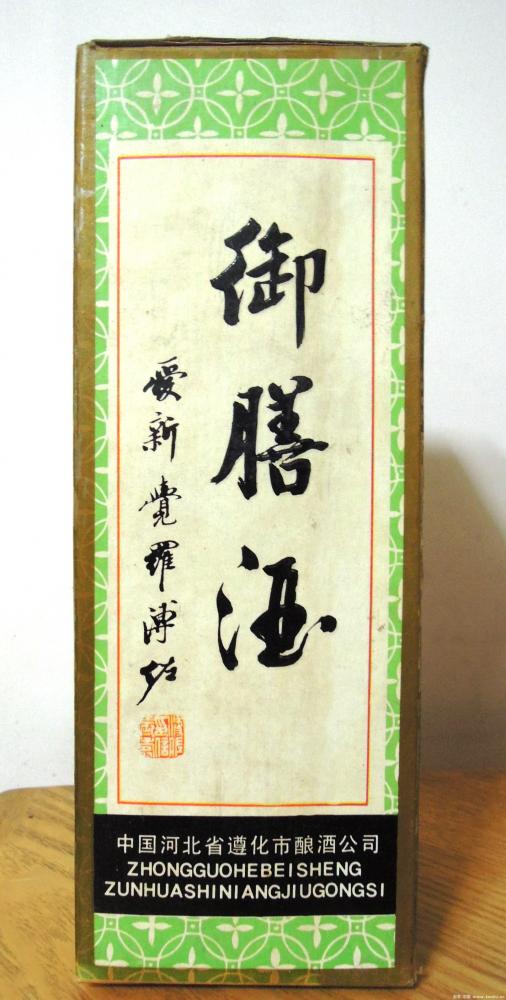 御膳酒
愛新覺羅溥佐
中国河北省遵化市酿酒公司
ZHONGGUOHEBEISHENG
ZUNHUASHINIANGJIUGONGSI